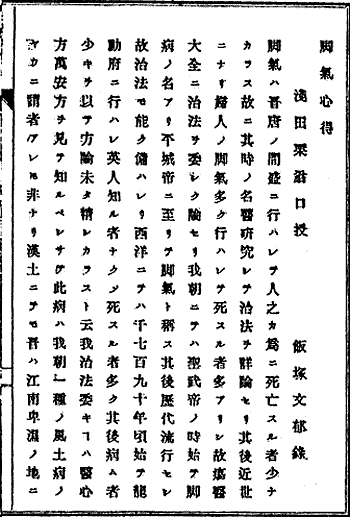 脚氣心得
淺田栗翁口授 飯塚文郁錄
脚氣ハ晋唐ノ間盛ニ行ハレテ人之カ爲ニ死亡スル者少ナ
カラス故ニ其時ノ名醫硏究シテ治法ヲ詳論セリ其後近世
ニナリ婦人ノ脚氣多ク行ハレテ死スル者多アリ故瘍醫
大全ニ治法ヲ委シク論セリ我朝ニテハ聖武帝ノ時始テ脚
病ノ名アリ不城帝ニ至リテ脚氣ト稱ス其後歷代流行セシ
故治法モ能ク備ハレリ西洋ニテハ千七百九十年頃始テ龍
動府ニ行ハレ英人知ル者ナクメ死スル者多ク其後病ム者
少キヲ以テ方論未タ精シカラスト云我治法委キヿハ醫心
方萬安方ヲ見テ知ルベシサテ此病ハ我朝一種ノ風土病ノ
ヤウニ謂者アレモ非ナリ漢土ニテモ晋ハ江南卑濕ノ地ニ